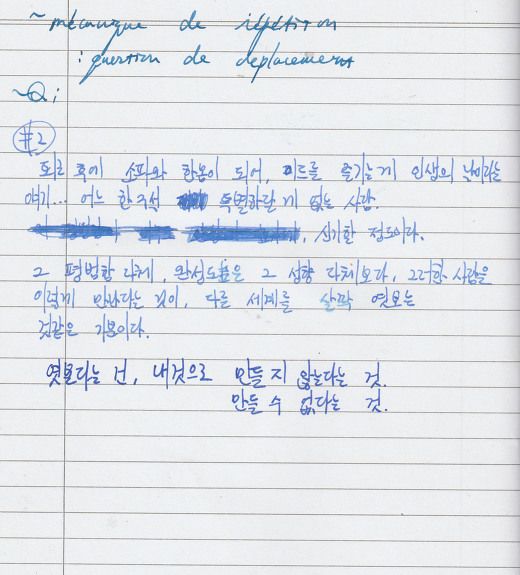 ~ mécanique de répétition
: question de déplacement
~Q;
#2
퇴근 후에 소파와 한몸이 되어, 미드를 즐기는게 인생의 낙이라는
얘기... 어느 한 구석 특별하달게 없는 사람.
, 신기할 정도이다.
그 평범함 자체, 완성도 높은 그 성향 자체보다, 그러한 사람을
이렇게 만난다는 것이, 다른 세계를 살짝 엿보는
것같은 기분이다.
엿본다는 건, 내것으로 만들지 않는다는 것.
만들 수 없다는 것.